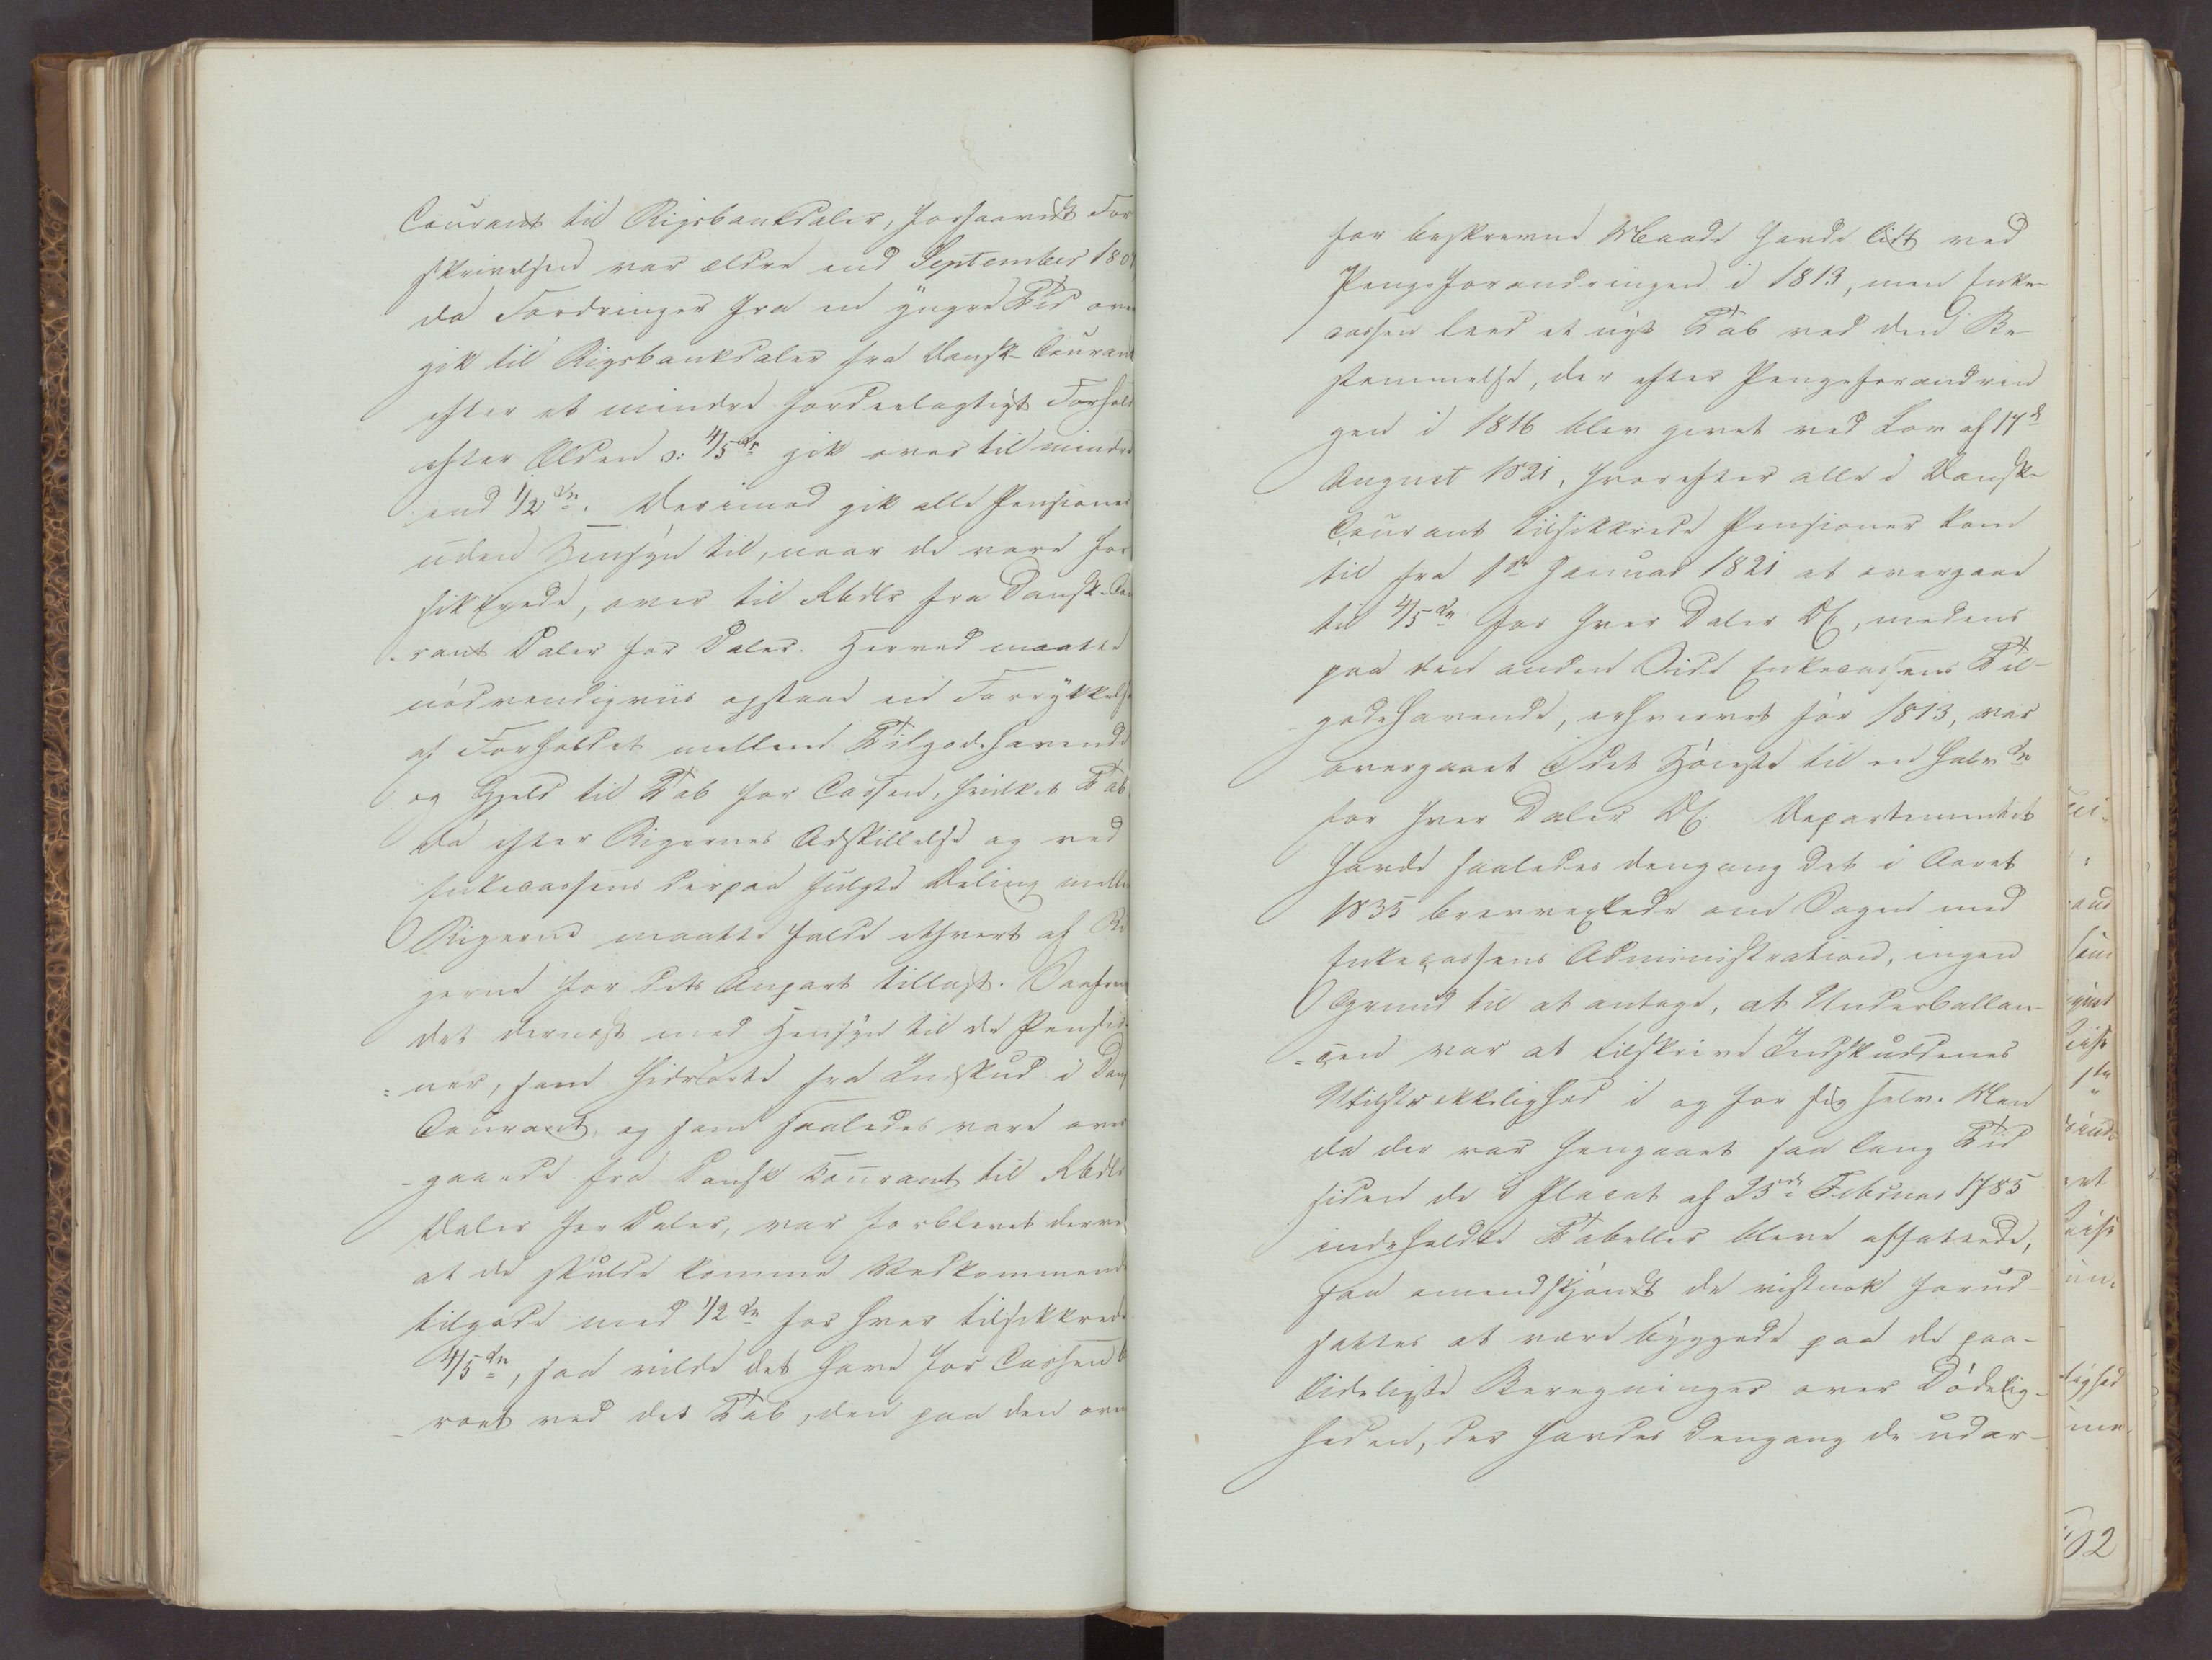 Courant til Rigsbankdaler, forsaavidt For
skrivelsen var ældre end September 180
da Fordringer fra en yngre Tid over
gik til Rigsbankdaler fra Dansk Courant
efter et mindre fordeelagtigt Forhold
efter Alderen o: 4/5 gik over til mindre
end 1/2. Derimod gik alle Pensioner
uden Hensyn til, naar de vare for
sikkrede, over til Rbdlr fra Dansk-Cou
rant Daler for Daler. Herved maatte
nödvendigviis opstaae en Forrykkelse
af Forholdet mellem Tilgodehavende
og Gjeld til Tab for Cassen, hvilket Tab
da efter Rigernes Adskillelse og ved
Enkecassens derpaa fulgte Deling mellem
Rigerne maatte falde ethvert af Ri
gerne for dets Anpart tillast. Saafrem
det dernæst med Hensyn til de Pensio
-ner, som hidrörte fra Indskud i Dansk
Courant, og som saaledes vare over
-gaaede fra Dansk Courant til Rbdlr
Daler for Daler, var forblevet derved
at de skulde komme Vedkommende
tilgode med 1/2 for hver tilsikkrede
4/5, saa vilde det have for Cassen be
-roet ved det Tab, den paa den oven
for beskrevne Maade havde lidt ved
Pengeforandringen i 1813, men Enke-
cassen leed et nyt Tab ved den Be-
stemmelse, der efter Pengeforandrin
gen i 1816 blev givet ved Lov af 17
August 1821, hvorefter alle i Dansk-
Courant tilsikkrede Pensioner kom
til fra 1 Januar 1821 at overgaae
til 4/5 for hver Daler DC, medens
paa den anden Side Enkecassens Til-
godehavende, erhvervet för 1813, var
overgaaet i det Höieste til en halv
for hver Daler DC. Departementet
havde saaledes dengang det i Aaret
1835 brevvexlede om Sagen med
Enkecassens Administration, ingen
Grund til at antage, at Underballan-
-cen var at tilskrive Indskuddenes
Utilstrækkelighed i og for sig selv. Men
da der var hengaaet saa lang Tid
siden de i Placat af 25 Februar 1785
indeholdte Tabeller bleve affattede,
saa omendskjöndt de vistnok forud-
sattes at være byggede paa de paa-
lideligste Beregninger over Dödelig-
heden, der havdes dengang de udar-